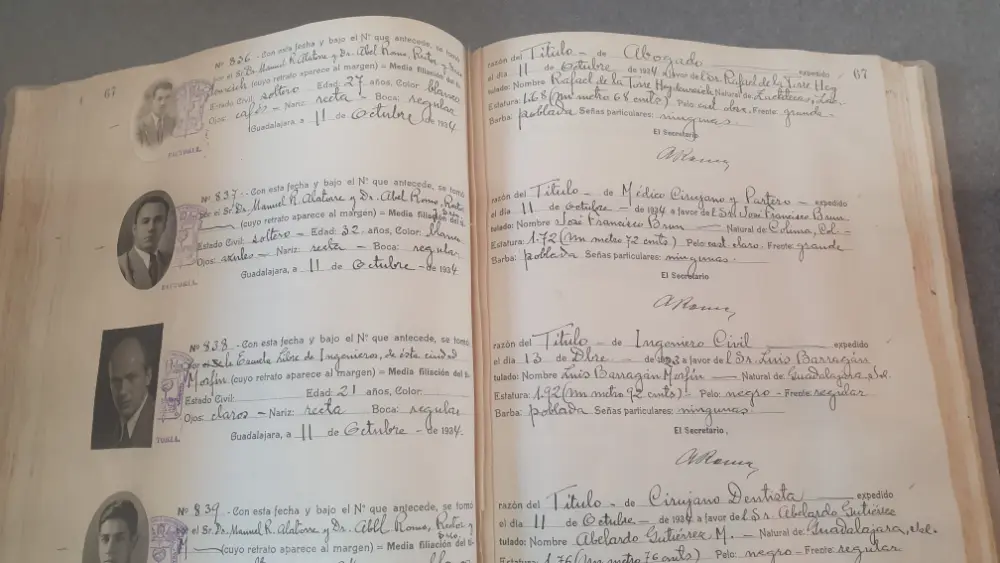 67
Nº 836 - Con esta fecha y bajo el Nº que antecede, se tomó
por el Sr. Dr. Manuel R. Alatorre y Dr. Abel Romo, Rector y Srio.
(cuyo retrato aparece al margen) = Media filiación del ti-
Estado Civil: soltero - Edad: 27 años, Color: blanco
Ojos: cafés - Nariz: recta - Boca: regular
Guadalajara, a 11 de Octubre - de 1934.
Nº 837 - Con esta fecha y bajo el Nº que antecede, se tomó
por el Sr. Dr. Manuel R. Alatorre y Dr. Abel Romo, Rector
y Srio. (cuyo retrato aparece al margen) = Media filiación del ti-
Estado Civil: soltero - Edad: 32 años, Color: blanco
Ojos: azules - Nariz: recta - Boca: regular
Guadalajara, a 11 de Octubre - de 1934
Nº 838 - Con esta fecha y bajo el Nº que antecede, se tomó
por la Escuela Libre de Ingenieros, de esta ciudad
Morfín (cuyo retrato aparece al margen) = Media filiación del ti-
Estado Civil: Edad: 21 años, Color:
Ojos: claros - Nariz: recta Boca: regular
Guadalajara, a 11 de Octubre - de 1934.
Nº 839 - Con esta fecha y bajo el Nº que antecede, se tomó
por el Sr. Dr. Manuel R. Alatorre y Dr. Abel Romo, Rector y
Srio.
M. (cuyo retrato aparece al margen) = Media filiación del ti-
67
razón del Título - de Abogado expedido
el día 11 de Octubre - de 1934 a favor del Sr. Rafael de la Torre
tulado: Nombre Rafael de la Torre Natural de: Zacatecas, Zac.
Estatura: 1.68 (Un metro 68 cmts) Pelo: cast. obsc. Frente: grande -
Barba: poblada Señas particulares: ningunas.
El Secretario
ARomo
razón del Título - de Médico Cirujano y Partero - expedido
el día 11 de Octubre - de 1934 a favor del Sr. José Francisco Brun
tulado: Nombre José Francisco Brun Natural de: Colima, Col -
Estatura: 1.72 (Un metro 72 cmts) Pelo: cast. claro. Frente: grande
Barba: poblada Señas particulares: ningunas -
El Secretario
ARomo
razón del Título - de Ingeniero Civil expedido
el día 13 de Dbre - de 1923 a favor del Sr. Luis Barragán
tulado: Nombre Luis Barragán Morfín Natural de: Guadalajara, Jal.
Estatura: 1.92 (Un metro 92 cmts) - Pelo: negro - Frente: regular
Barba: poblada Señas particulares: ningunas
El Secretario,
ARomo
razón del Título - de Cirujano Dentista expedido
el día 11 de Octubre - de 1934 a favor del Sr. Abelardo Gutiérrez
tulado: Nombre Abelardo Gutiérrez M. - Natural de: Guadalajara, Jal.
Estatura: 1.76 (Un metro 76 cmts) Pelo: negro - Frente: regular